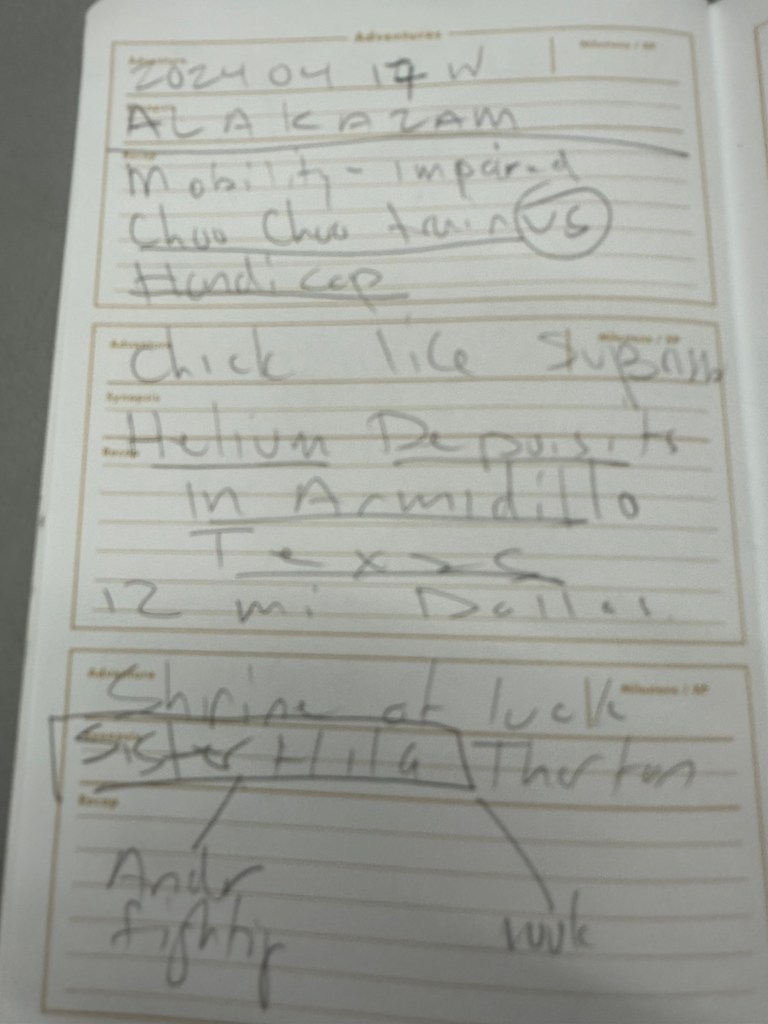 Adventures
Adventure
Milestone / XP
2024 04 17 W
ALAKAZAM
Recap
Mobility-Impaired
Choo Choo train VS
Handicap
Adventure
Milestone / XP
Chick like
Synopsis
Helium Deposits
Recap
in Armidillo
Texas
12 mi Dollar
Adventure
Milestone / XP
Shrine of luck
Sister Hila Thorton
Recap
Andr
rook
fightig